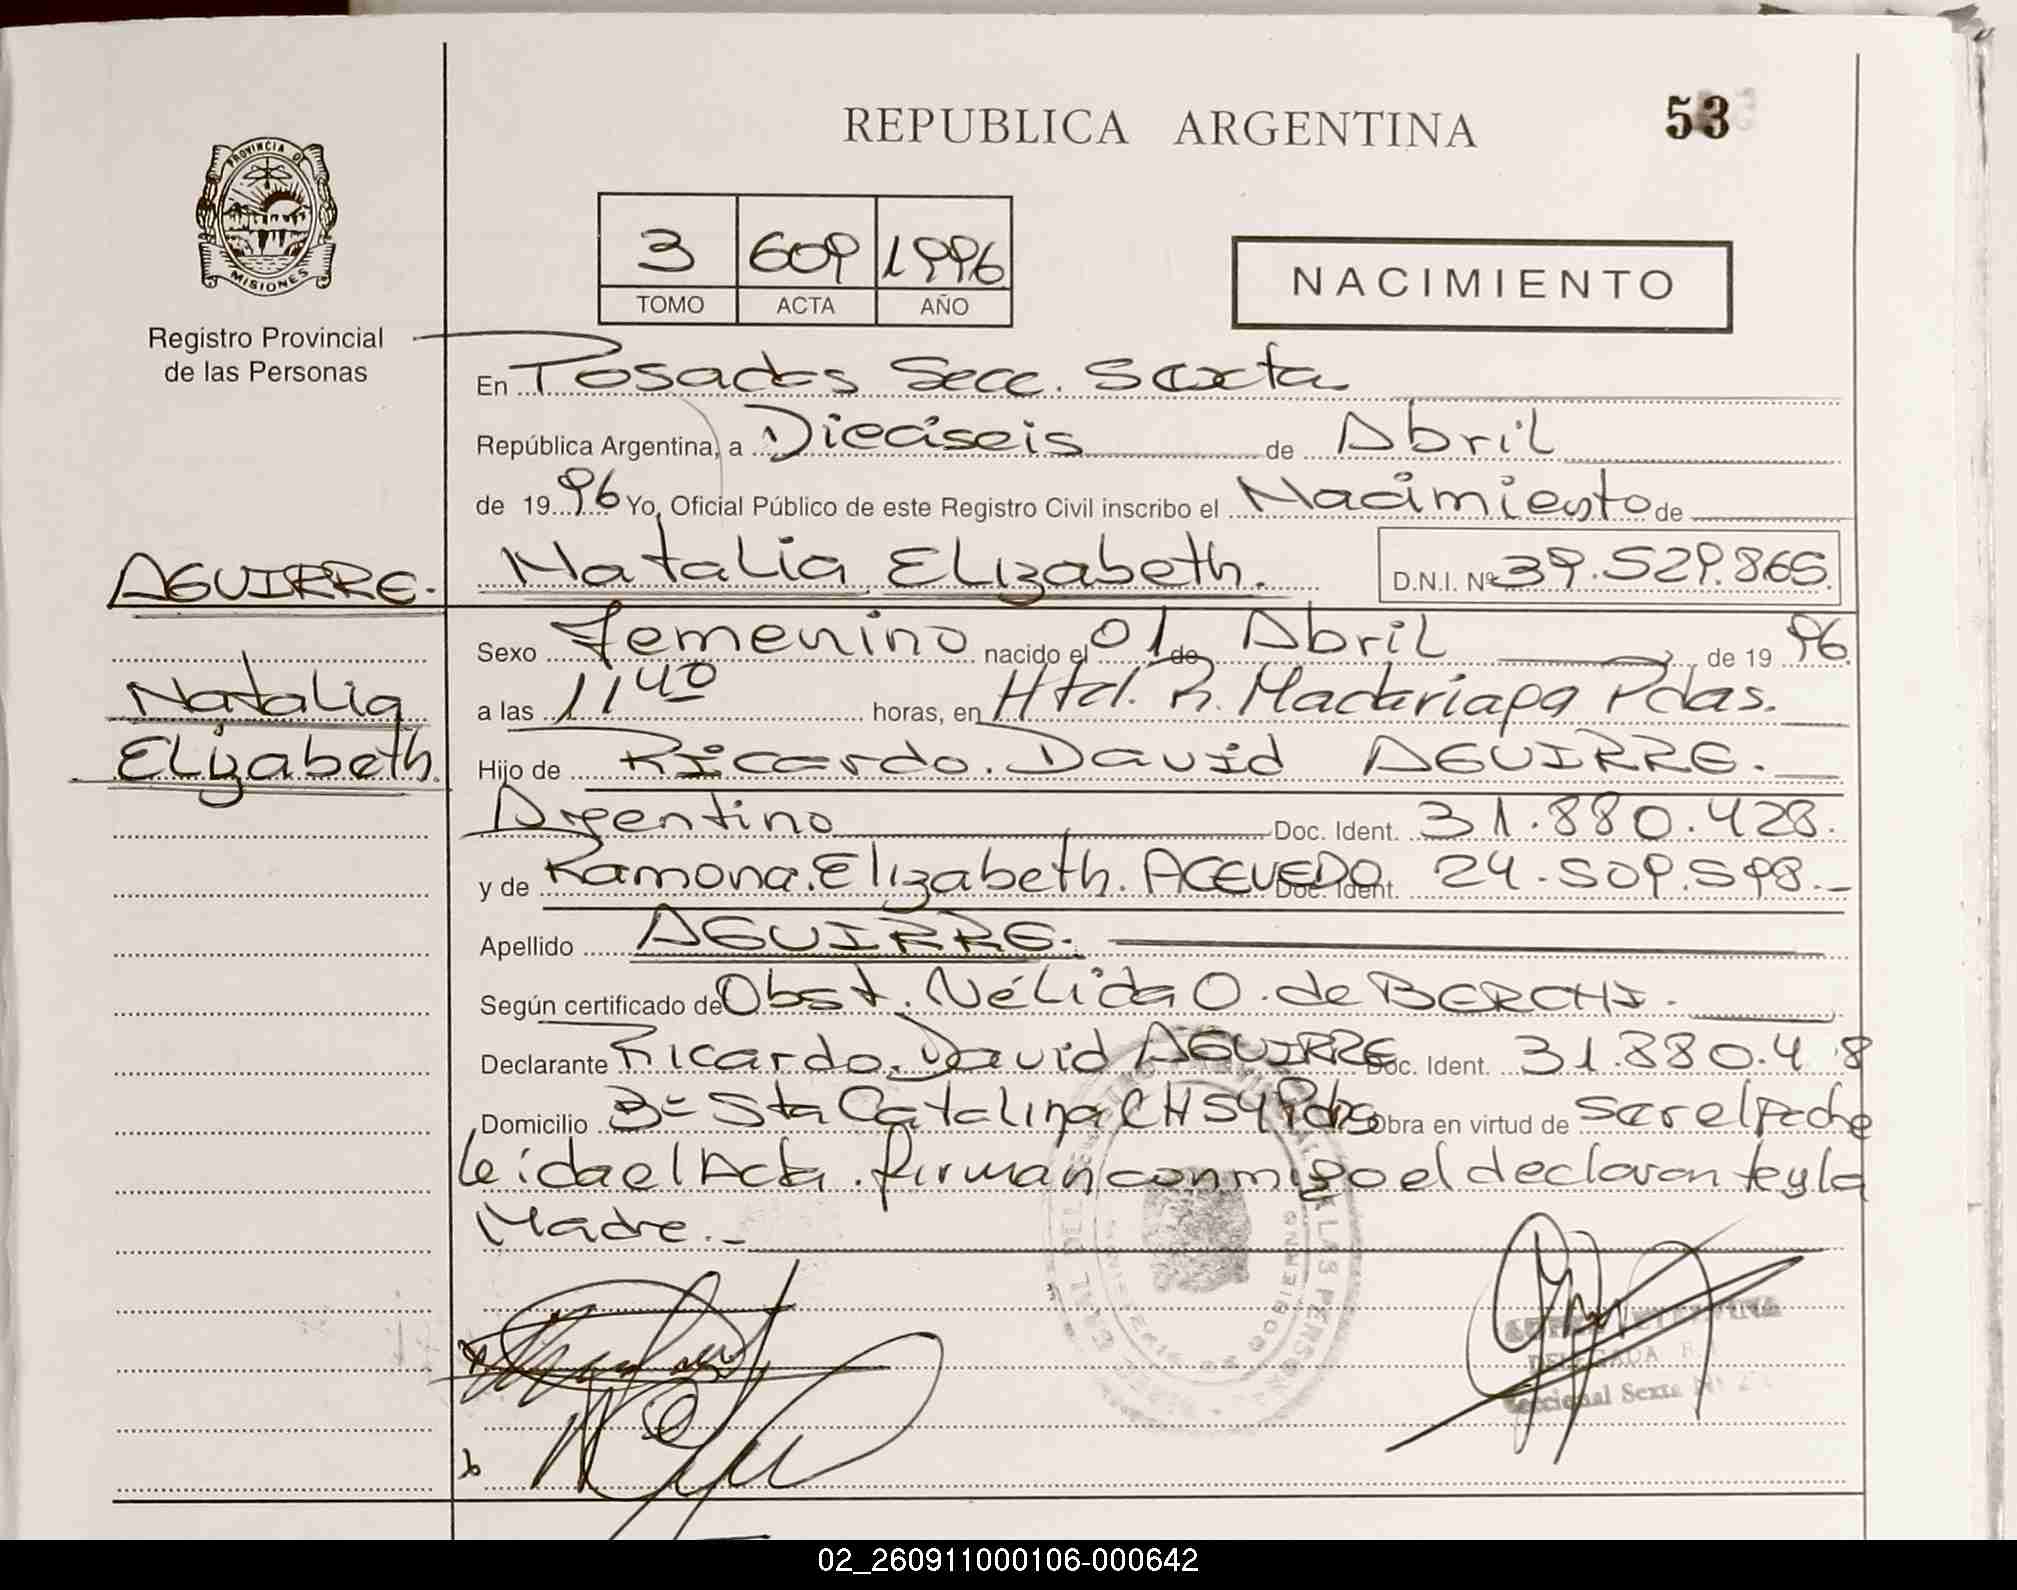 REPUBLICA ARGENTINA
53
PROVINCIA DE
MISIONES
Registro Provincial
de las Personas
3 609 1996
TOMO ACTA AÑO
NACIMIENTO
En Posadas Secc. Sexta
República Argentina, a Dieciseis de Abril
de 1996 Yo, Oficial Público de este Registro Civil inscribo el Nacimiento de
AGUIRRE. Natalia Elizabeth. D.N.I. Nº 39.529.865.
Natalia
Elizabeth.
Sexo Femenino nacido el 01 de Abril de 1996.
a las 11 40 horas, en Htal. R. Madariaga Pdas.
Hijo de Ricardo. David AGUIRRE.
Argentino Doc. Ident. 31.880.428.
y de Ramona. Elizabeth. ACEVEDO Doc. Ident. 24.509.598.-
Apellido AGUIRRE.
Según certificado de Obst. Nélida O. de BERCHI.
Declarante Ricardo. David AGUIRRE Doc. Ident. 31.880.4 8
Domicilio Bº Sta Catalina CH 54 Pdas Obra en virtud de ser el Padre
leida el Acta. firman conmigo el declarante y la
Madre.-
DELEGADA
Seccional Sexta
02_260911000106-000642